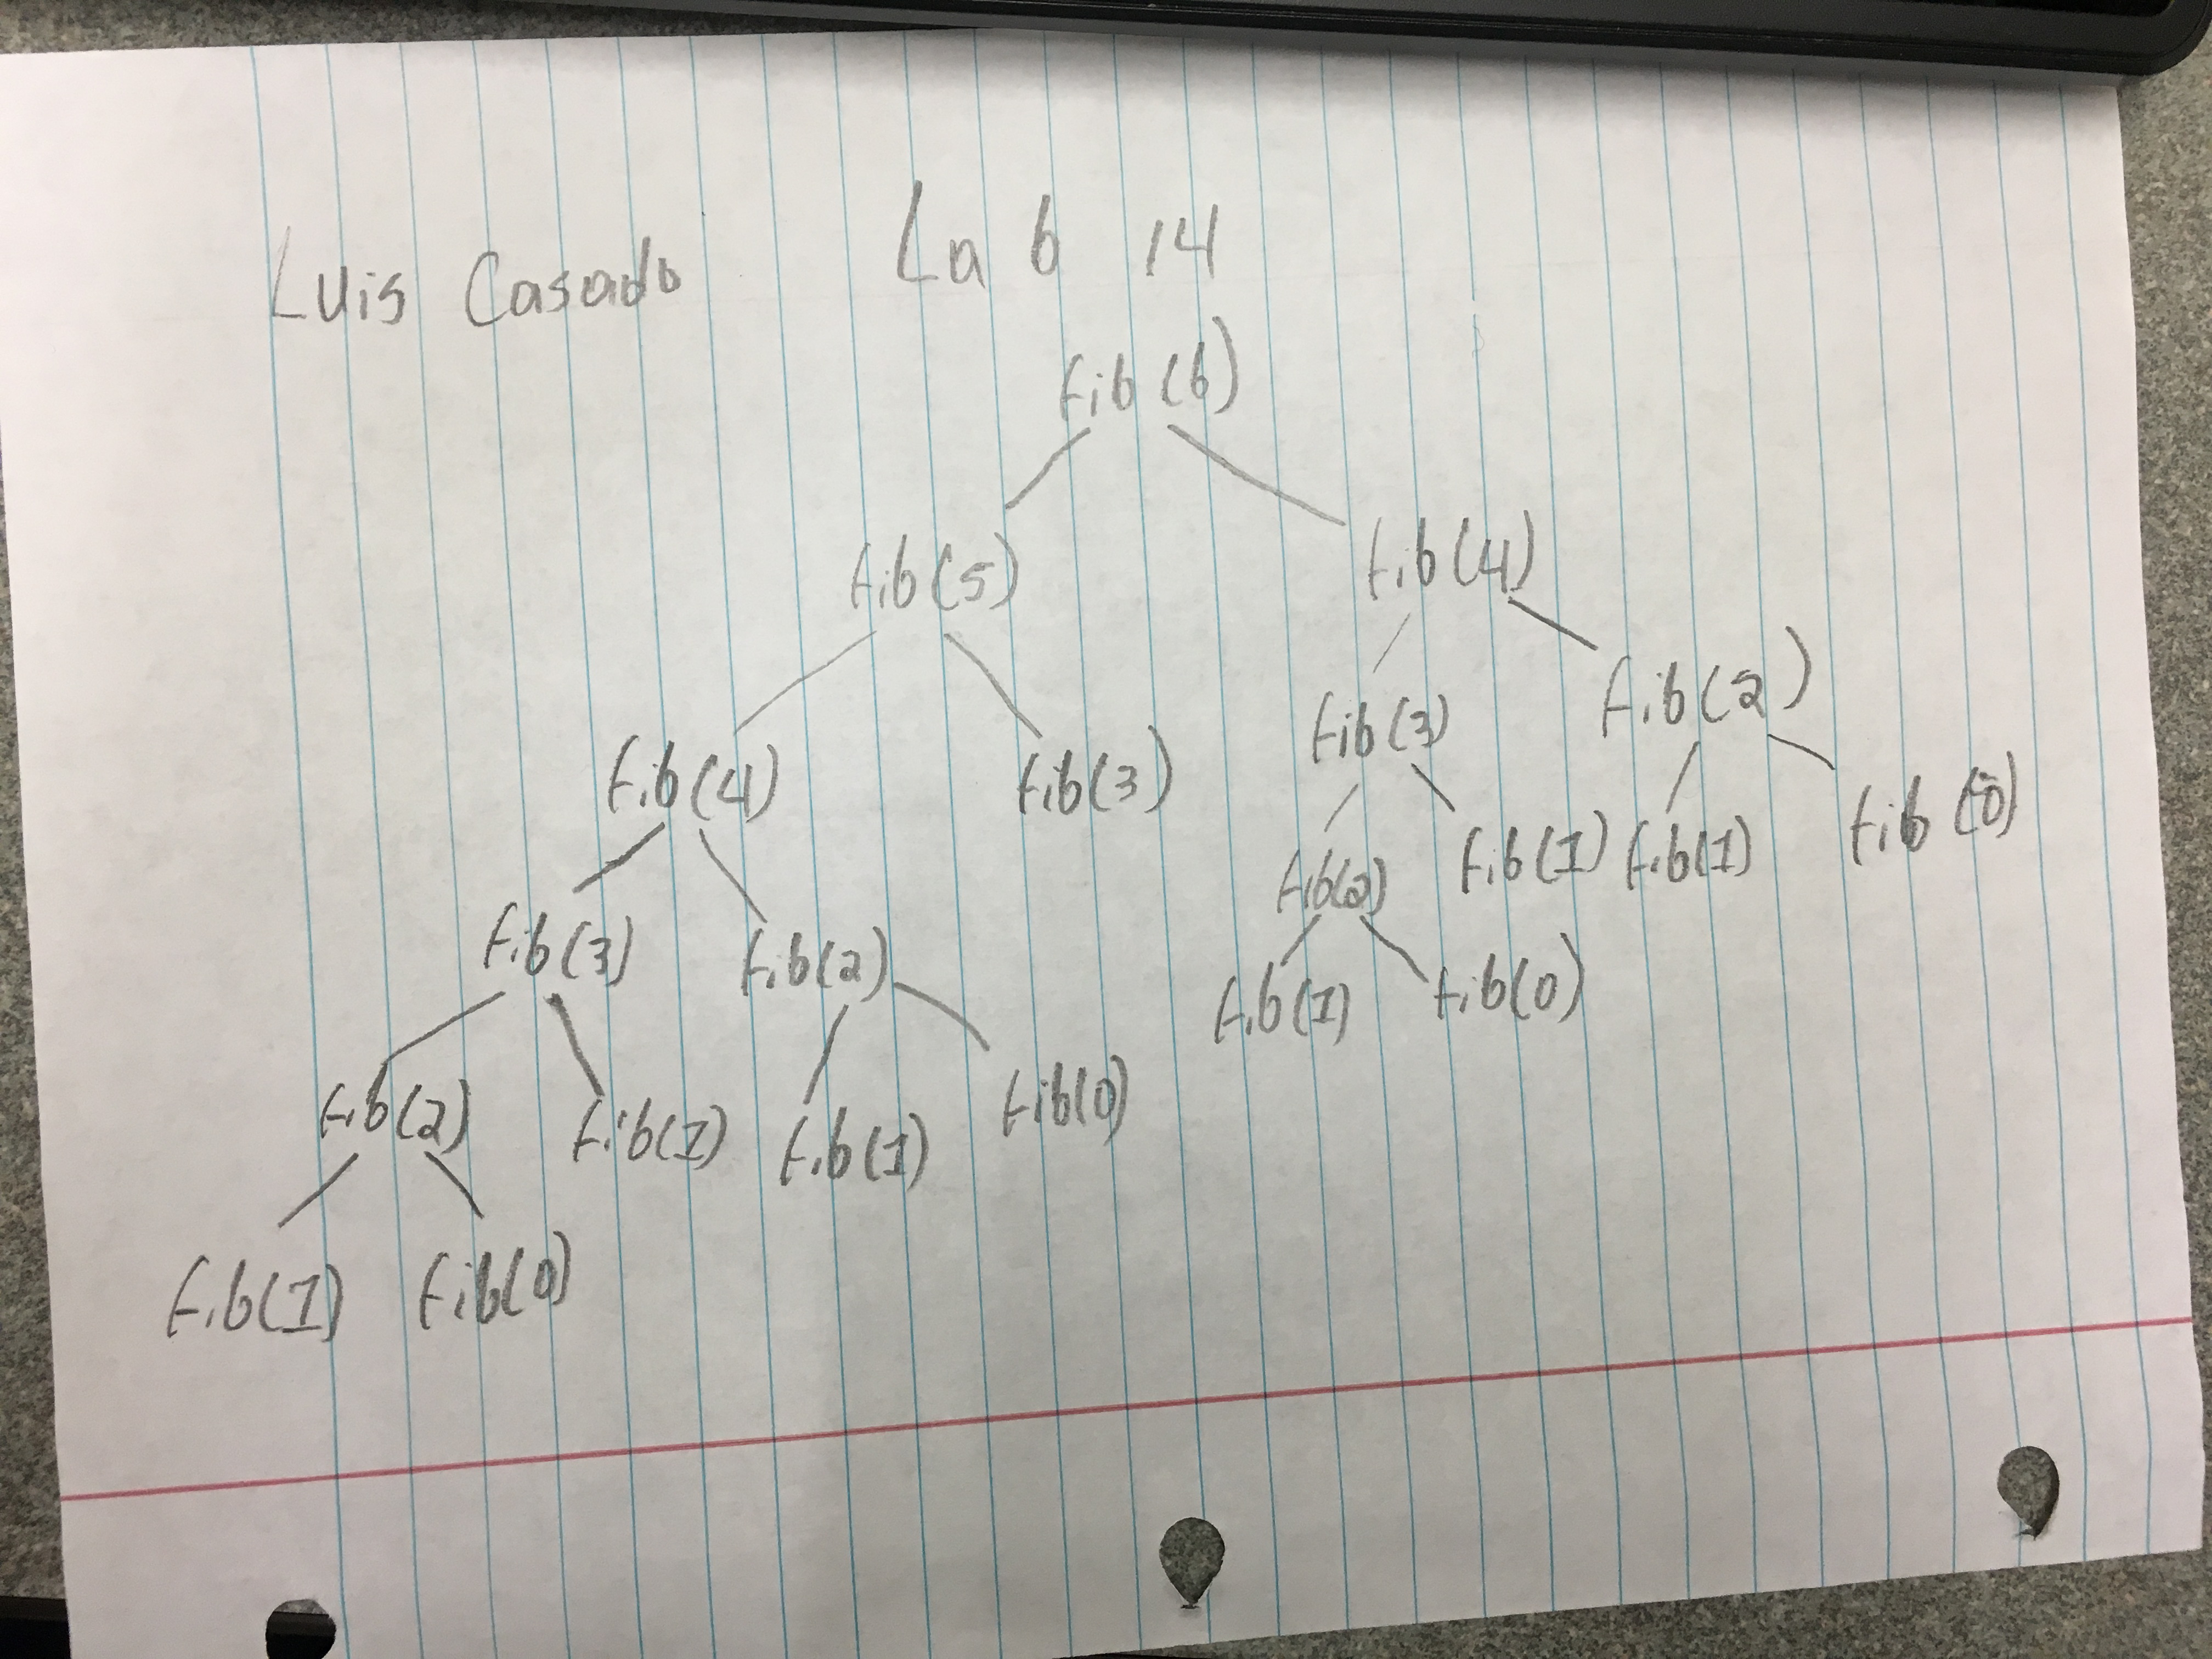 Luis Casado Lab 14
fib(6)
fib(5) fib(4)
fib(4) fib(3) fib(3) fib(2)
fib(3) fib(2) fib(2) fib(1) fib(1) fib(0)
fib(2) fib(1) fib(1) fib(0) fib(1) fib(0)
fib(1) fib(0)